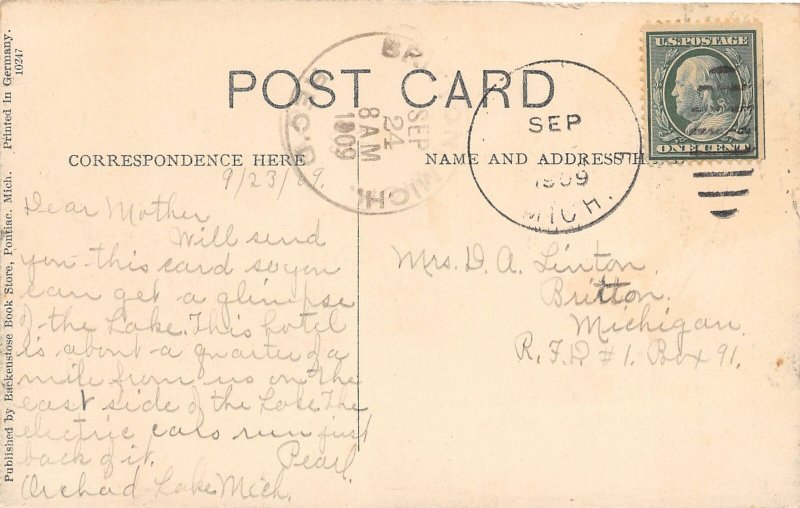 Published by Backenstose Book Store, Pontiac, Mich. Printed in Germany.
10247
POST CARD
CORRESPONDENCE HERE
NAME AND ADDRESS H
U.S. POSTAGE
ONE CENT
REC'D.
SEP
24
8 AM
1909
MICH.
SEP
1909
MICH.
9/23/09.
Dear Mother
Will send
you this card so you
can get a glimpse
of the Lake. This hotel
is about a quarter of a
mile from us on the
east side of the Lake. The
electric cars run just
back of it. Pearl.
Orchad Lake Mich.
Mrs. D. A. Linton.
Britton.
Michigan.
R.F.D # 1. Box 91.